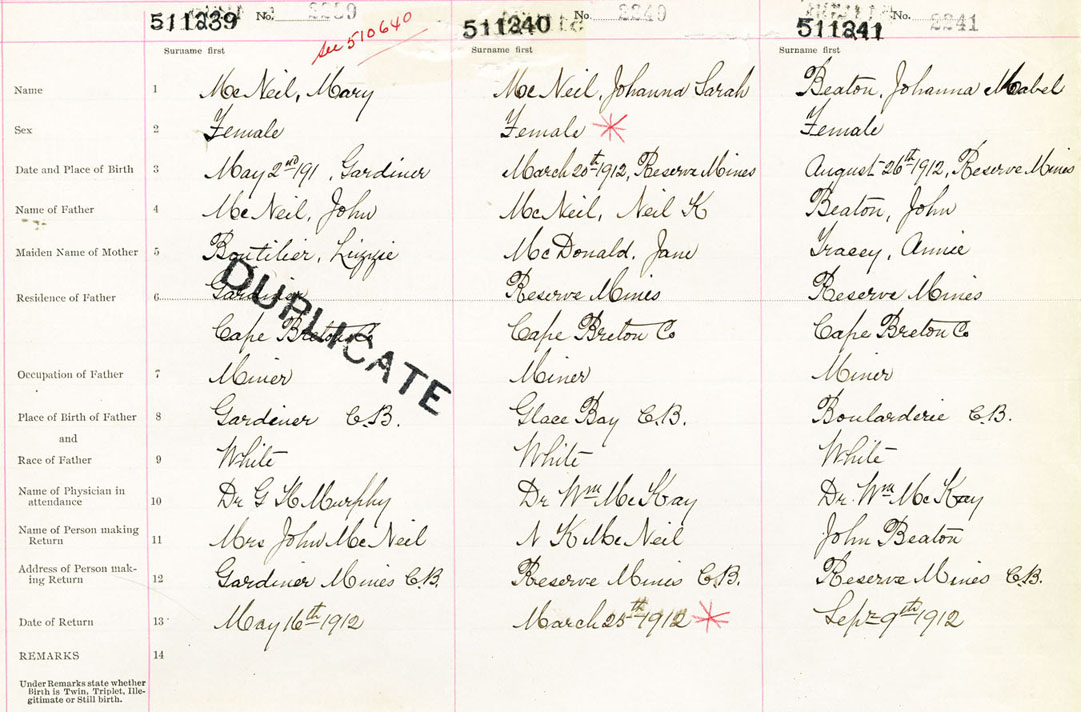 511239 No. 2239 511240 No. 2240 511241 No. 2241
see 510640
Surname first Surname first Surname first
Name 1 McNeil, Mary McNeil, Johanna Sarah Beaton, Johanna Mabel
Sex 2 Female Female Female
Date and Place of Birth 3 May 2nd 191 , Gardiner March 20th 1912, Reserve Mines August 26th 1912, Reserve Mines
Name of Father 4 McNeil, John McNeil, Neil K Beaton, John
Maiden Name of Mother 5 Boutilier, Lizzie McDonald, Jane Tracey, Annie
Residence of Father 6 Gardiner Reserve Mines Reserve Mines
Cape Breton Co Cape Breton Co Cape Breton Co
DUPLICATE
Occupation of Father 7 Miner Miner Miner
Place of Birth of Father 8 Gardiner C.B. Glace Bay C.B. Boularderie C.B.
and
Race of Father 9 White White White
Name of Physician in
attendance 10 Dr G H Murphy Dr Wm McKay Dr. Wm McKay
Name of Person making
Return 11 Mrs John McNeil N K McNeil John Beaton
Address of Person mak-
ing Return 12 Gardiner Mines C.B. Reserve Mines C.B. Reserve Mines C.B.
Date of Return 13 May 16th 1912 March 25th 1912 Sept 9th 1912
REMARKS 14
Under Remarks state whether
Birth is Twin, Triplet, Ille-
gitimate or Still birth.